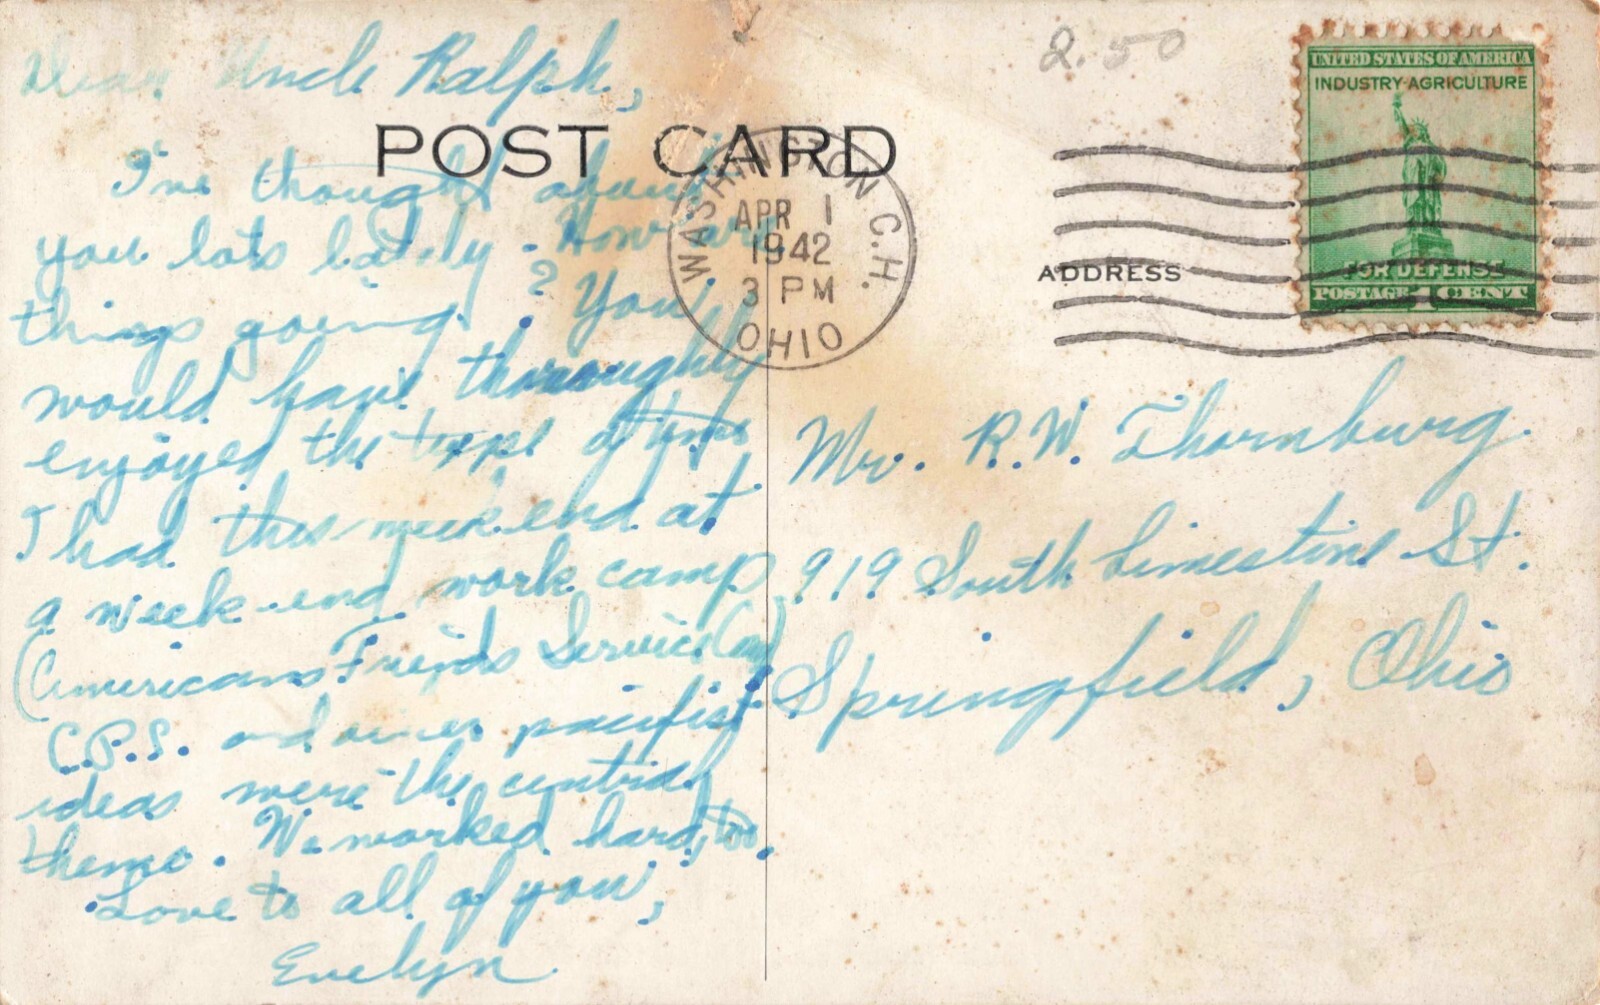 2.50
UNITED STATES OF AMERICA
INDUSTRY-AGRICULTURE
FOR DEFENSE
POSTAGE 1 CENT
POST CARD
WASHINGTON C.H.
APR 1
1942
3 PM
OHIO
ADDRESS
Dear Uncle Ralph,
I've thought about
you lots lately. How are
things going? You
would have thoroughly
enjoyed the type of time
I had this weekend at
a week-end work camp
(Americans Friends Service Com)
C.P.S. and pacifist
ideas were the central
theme. We worked hard, too.
Love to all of you,
Evelyn
Mr. R.W. Thornburg
919 South Limestine St.
Springfield, Ohio